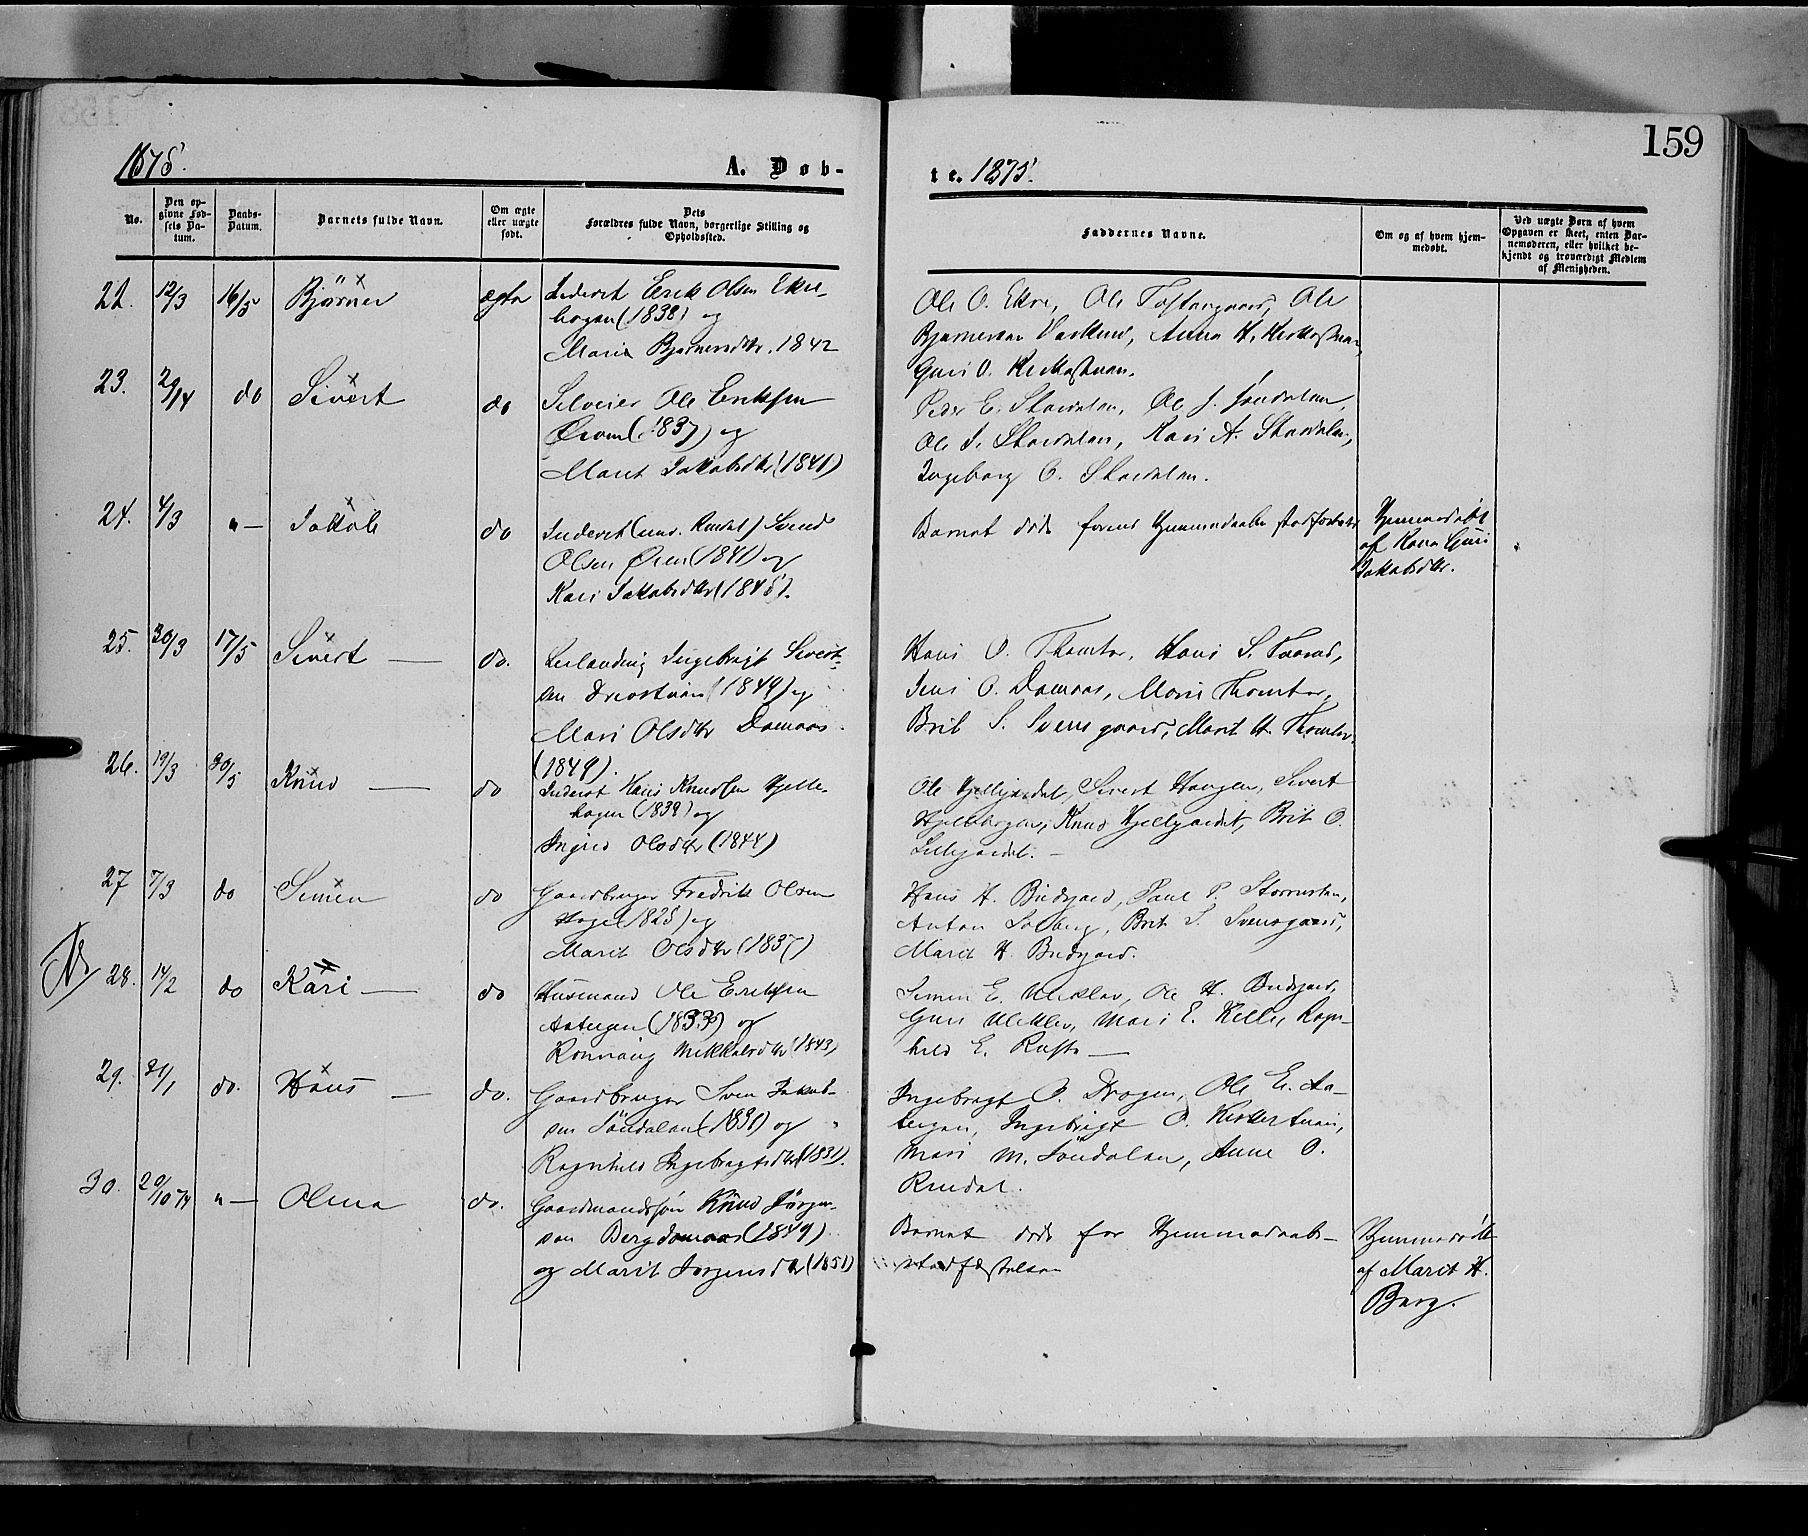 159
1875.
A. Døb-
te. 1875.
No.
Den op-
givne Fød-
sels Da-
tum.
Daabs-
Datum.
Barnets fulde Navn.
Om ægte
eller uægte
født.
Dets
Forældres fulde Navn, borgerlige Stilling og
Opholdssted.
Faddernes Navne.
Om og af hvem hjem-
medøbt.
Ved uægte Børn af hvem
Opgaven er skeet, enten Bar-
nemoderen, eller hvilket be-
kjendt og troværdigt Medlem
af Menigheden.
22. 12/3 16/5 Bjørner ægte Inderst Erik Olsen Ekre-
hagen (1838) og
Mari Bjørnersdtr. 1842
Ole O. Ekre, Ole Toftemgaard, Ole
Bjørnersen, Anna H.
Guri O.
23. 29/14 do Sivert do Selveier Ole Eriksen
Øren (1837) og
Marit Jakobsdtr (1841)
Peder E. Skardalen, Ole J. Jøndalen,
Ole I. Skardalen, Kari A. Skardalen,
Ingeborg O. Skardalen.
24. 4/3 "— Jakob do Inderst Svend
Olsen Øren (1841) og
Kari Jakobsdtr (1845).
Barnet døde forend Hjemmedaaben stadfæstedes
Hjemmedøbt
af Kone Guri
Jakobsdtr.
25. 30/3 17/5 Sivert — do. Ingebrigt Sivert-
sen Drivstuen (1849) og
Mari Olsdtr Domaas.
(1849).
Hans O. Thomter, Hans S.
Jens O. Domaas, Mari Thomter,
Brit S. Svensgaard, Marit H. Thomter.
26. 19/3 20/5 Knud — do Inderst Hans Knudsen Hjelle-
hagen (1839) og
Ingrid Olsdtr (1844)
Ole Hjellejordet, Sivert Haugen, Sivert
Hjellehagen, Knud Hjellejordet, Brit O.
27 7/3 do Simen do Gaardbruger Fredrik Olsen
Hage (1825) og
Marit Olsdtr (1837)
Hans H. Budsjord, Paul P.
Anton Solberg, Brit S. Svensgaard,
Marit H. Budsjord.
28. 14/2 do Kari — do Husmand Ole Eriksen
(1833) og
Rønnaug Mikkelsdtr (1843)
Simen E. Uleklev, Ole H. Budsjord,
Guri Uleklev, Mari E. Kelle, Ragn-
hild E. Rusto —
29. 21/1 do. Hans — do. Gaardbruger Sven Jakob-
sen Jøndalen og
Ragnhild Ingebrigtsdtr (1831).
Ingebrigt O. Dragen, Ole E. Aa-
Ingebrigt O.
Mari M. Jøndalen, Anne O.
Rindal.
30. 29/10 74 "— Olina do. Gaardmandssøn Knud Jørgen-
sen Bergdomaas (1849)
og Marit Jørgensdtr (1851)
Barnet døde før Hjemmedaabs-
stadfæstelsen
Hjemmedøbt
af Marit H.
Berg.